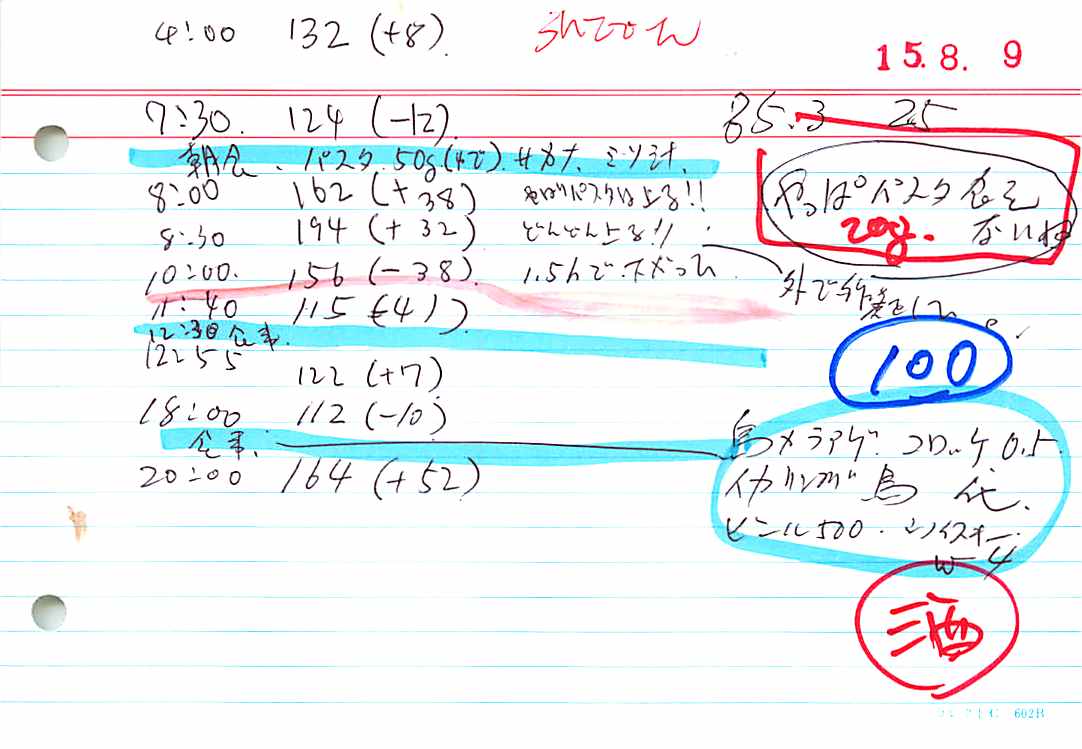 4:00 132 (+8).
15.8.9
7:30. 124 (-12). 85.3 25
朝食、パスタ 50g
8:00 162 (+38) やはりパスタは上る!!
やっぱパスタ食え
8:30 194 (+32) どんどん上る!!
20g. ないね
10:00. 156 (-38) 1.5hで下がった
外で作業をした。
11:40 115 (-41)
12:30 食事.
12:55
122 (+7)
100
18:00 112 (-10)
食事.
コロッケ 0.5.
20:00 164 (+52)
イカリング 鳥
ビール500. ウイスキー
W-4
酒
602B